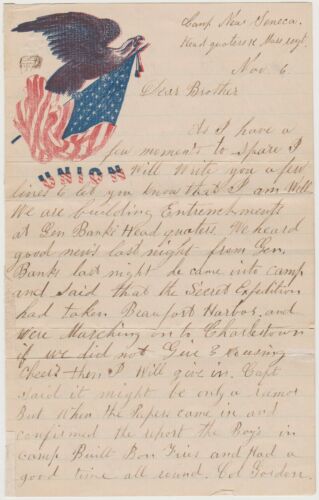 Camp Near Seneca.
Head quaters Mass regt.
Nov. 6.
Dear Brother
As I have a
few moments to spare I
UNION
Will Write you a few
lines to let you know that I am Well
We are building Entrenchments
at Gen Banks Head quaters. We heard
good news last night from Gen.
Banks last night he came into camp
and said that the Secret Expedition
had taken Beaufort Harbor and
were Marching on to Charlestown
if we did not Give Rousing
Cheers then I Will give in. Capt
said it might be only a rumor
But When the Papers came in and
confirmed the report the Boys in
camp Built Bon Fires and Had a
good time all round. Col Gordon.